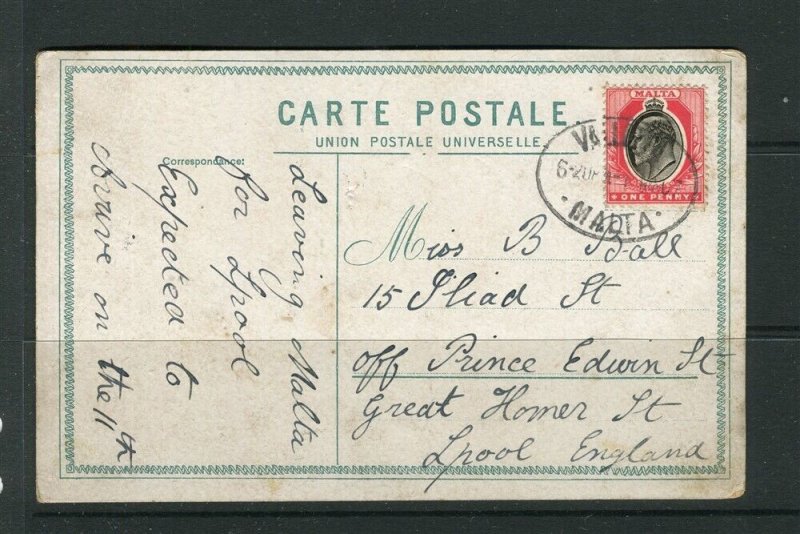 CARTE POSTALE.
UNION POSTALE UNIVERSELLE.
Correspondance:
MALTA
ONE PENNY
MALTA
Leaving Malta
for Lpool
Expected to
Arrive on the 11th
Miss B Ball
15 Iliad St
off Prince Edwin St
Great Homer St
Lpool England